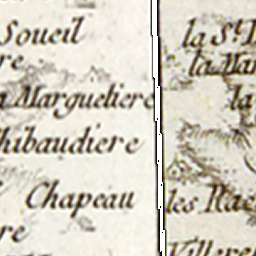 Soueil
re
Margueliere
hibaudiere
Chapeau
re
la St.
la Mar
la
les Rae
Villere